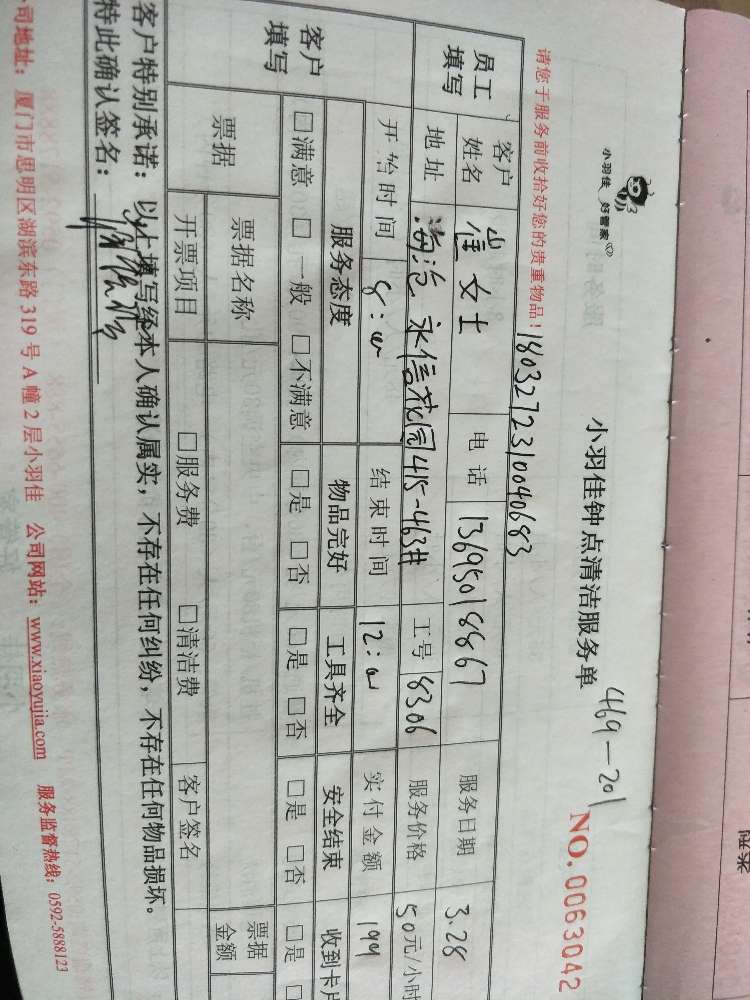 小羽佳 好管家
小羽佳钟点清洁服务单
469-201
NO. 0063042
请您于服务前收拾好您的贵重物品！
1803272310040683
员工填写
客户姓名 崔女士 电话 13695018867 服务日期 3.28
地址 海沧 永信花园415-463# 工号 8306 服务价格 50元/小时
客户填写
开始时间 8:00 结束时间 12:00 实付金额 199
服务态度 物品完好 工具齐全 安全结束 收到卡片
□满意 □一般 □不满意 □是 □否 □是 □否 □是 □否 □是
票据 票据名称 票据金额
开票项目 □服务费 □清洁费 客户签名
客户特别承诺：以上填写经本人确认属实，不存在任何纠纷，不存在任何物品损坏。
特此确认签名：
公司地址：厦门市思明区湖滨东路 319 号 A 幢 2 层小羽佳 公司网站：www.xiaoyujia.com 服务监督热线：0592-5888123